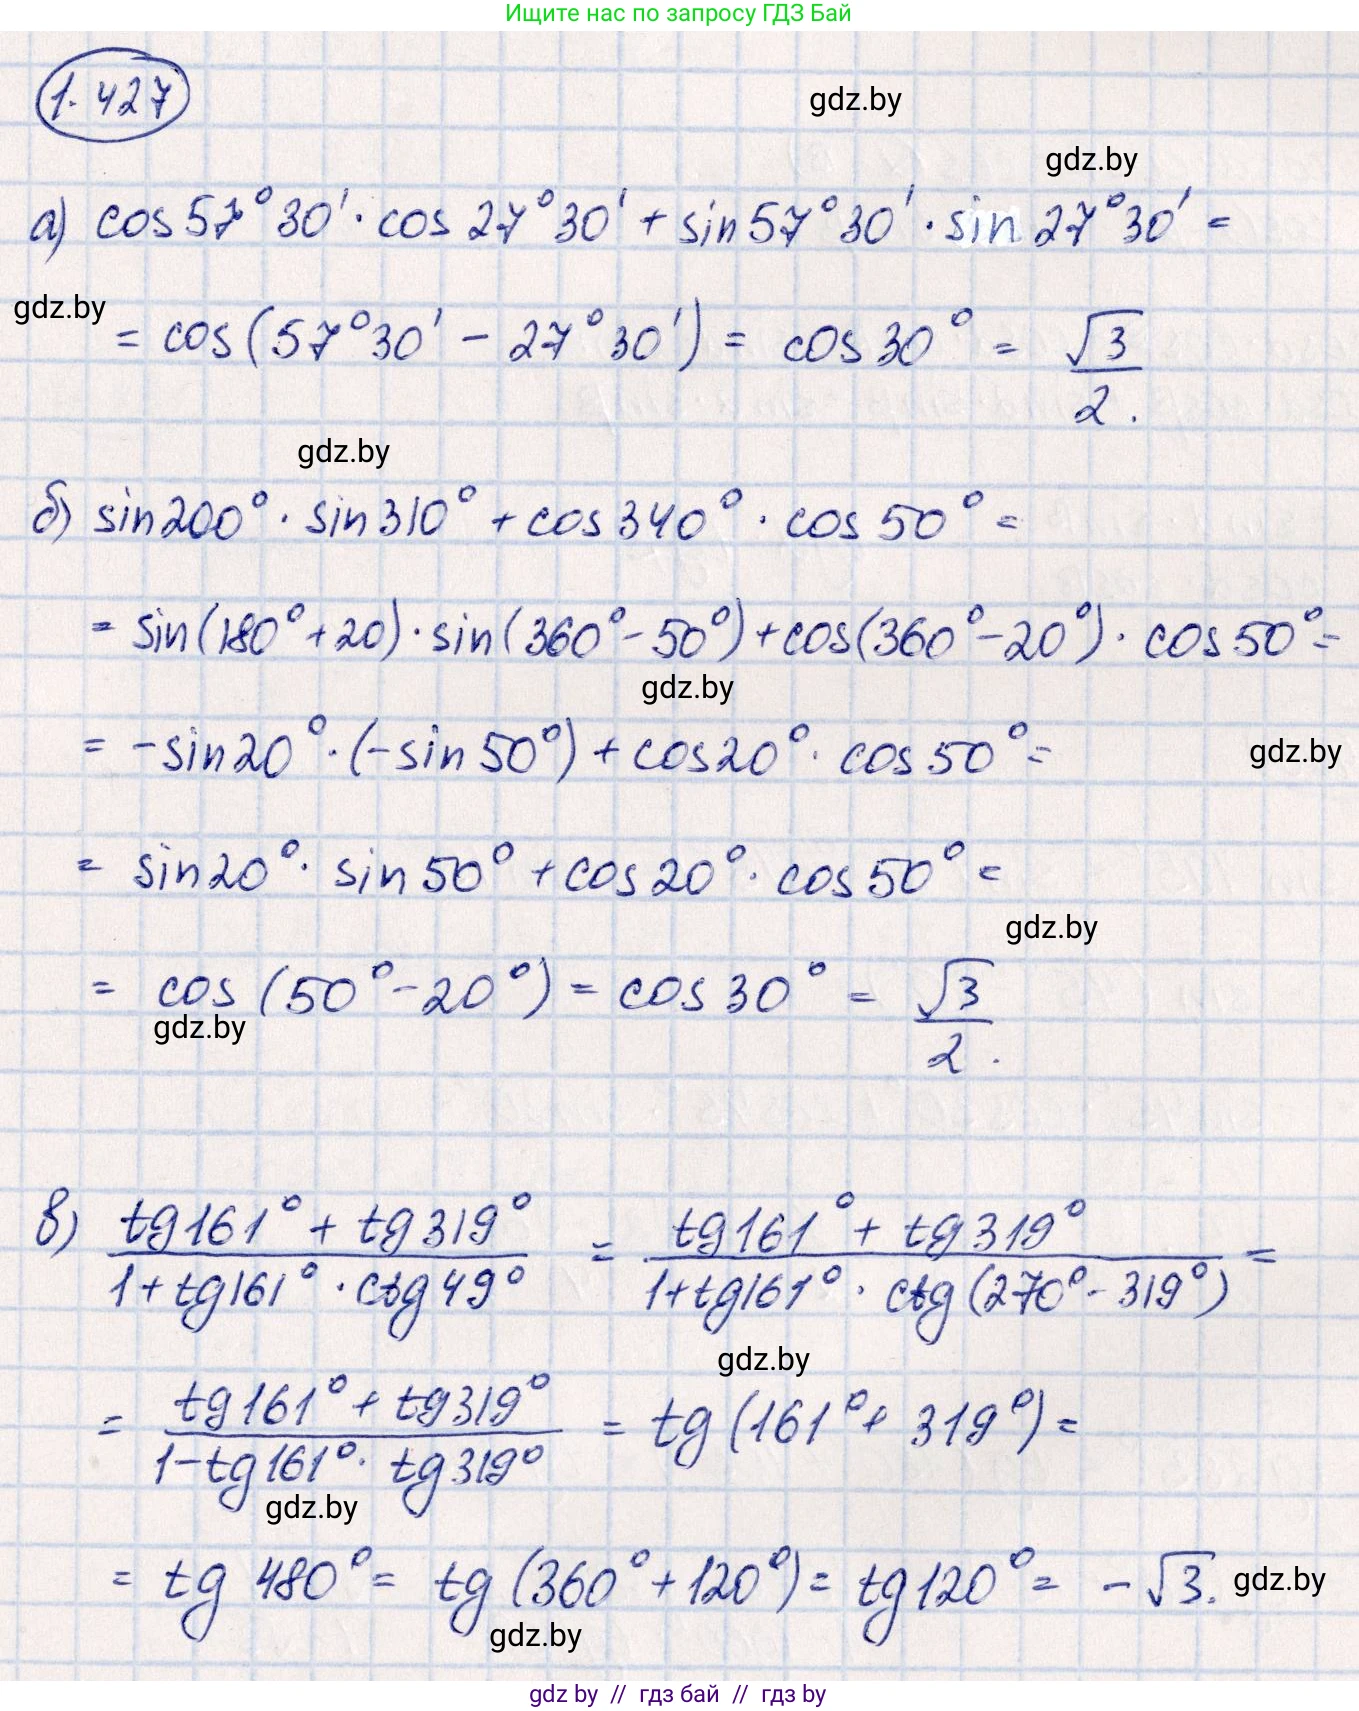 Ищите нас по запросу ГДЗ Бай
1.427
gdz.by
gdz.by
а) cos57°30'·cos27°30'+sin57°30'·sin27°30'=
gdz.by
=cos(57°30'-27°30')=cos30°=√3/2.
gdz.by
б) sin200°·sin310°+cos340°·cos50°=
=sin(180°+20)·sin(360°-50°)+cos(360°-20°)·cos50°=
gdz.by
=-sin20°·(-sin50°)+cos20°·cos50°=
gdz.by
=sin20°·sin50°+cos20°·cos50°=
gdz.by
=cos(50°-20°)=cos30°=√3/2.
gdz.by
в) (tg161°+tg319°)/(1+tg161°·ctg49°)=(tg161°+tg319°)/(1+tg161°·ctg(270°-319°))=
gdz.by
=(tg161°+tg319°)/(1-tg161°·tg319°)=tg(161°+319°)=
gdz.by
=tg480°=tg(360°+120°)=tg120°=-√3.
gdz.by
gdz.by
gdz.by // гдз бай // гдз by